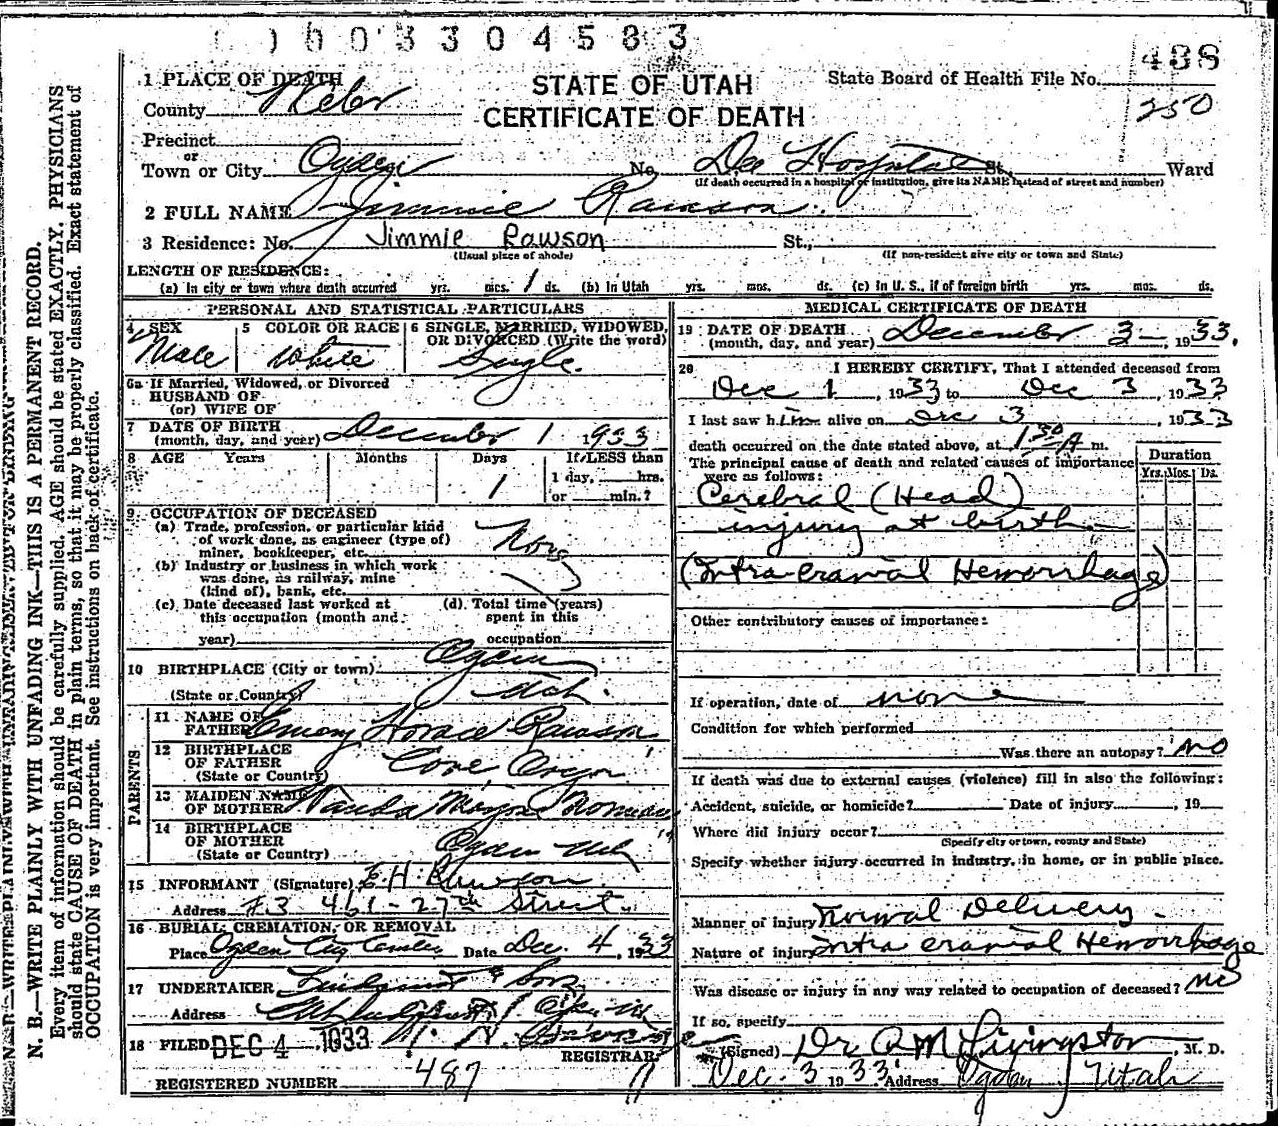 0003304583
438
1 PLACE OF DEATH
STATE OF UTAH
State Board of Health File No.
County Weber
CERTIFICATE OF DEATH
250
Precinct
or
Town or City Ogden No. Dee Hospital St. Ward
(If death occurred in a hospital or institution, give its NAME instead of street and number)
2 FULL NAME Jimmie Rawson
3 Residence: No. Jimmie Rawson St.,
(Usual place of abode) (If non-resident give city or town and State)
LENGTH OF RESIDENCE:
(a) In city or town where death occurred yrs. mos. 1 ds. (b) In Utah yrs. mos. ds. (c) In U. S., if of foreign birth yrs. mos. ds.
PERSONAL AND STATISTICAL PARTICULARS
4 SEX Male
5 COLOR OR RACE White
6 SINGLE, MARRIED, WIDOWED, OR DIVORCED (Write the word) Single.
6a If Married, Widowed, or Divorced
HUSBAND OF
(or) WIFE OF
7 DATE OF BIRTH
(month, day, and year) December 1 1933
8 AGE Years Months Days If LESS than
1 1 day, hrs.
or min.?
9 OCCUPATION OF DECEASED
(a) Trade, profession, or particular kind
of work done, as engineer (type of)
miner, bookkeeper, etc. None
(b) Industry or business in which work
was done, as railway, mine
(kind of), bank, etc.
(c) Date deceased last worked at
this occupation (month and
year)
(d) Total time (years)
spent in this
occupation
10 BIRTHPLACE (City or town) Ogden
(State or Country) Utah.
PARENTS
11 NAME OF
FATHER Emory Horace Rawson
12 BIRTHPLACE
OF FATHER
(State or Country) Cove, Oregon
13 MAIDEN NAME
OF MOTHER
14 BIRTHPLACE
OF MOTHER
(State or Country) Ogden Utah
15 INFORMANT (Signature) E. H. Rawson
Address #3 461-27th Street.
16 BURIAL, CREMATION, OR REMOVAL
Place Ogden City Date Dec. 4, 1933
17 UNDERTAKER & Sons
Address
18 FILED DEC 4 1933
REGISTRAR
REGISTERED NUMBER 487
MEDICAL CERTIFICATE OF DEATH
19 DATE OF DEATH
(month, day, and year) December 3, 1933.
20 I HEREBY CERTIFY, That I attended deceased from
Dec 1, 1933 to Dec 3, 1933
I last saw him alive on Dec 3, 1933
death occurred on the date stated above, at 1 30 A m.
The principal cause of death and related causes of importance
were as follows:
Duration
Yrs. Mos. Ds.
Cerebral (Head)
injury at birth
(Intra cranial Hemorrhage)
Other contributory causes of importance:
If operation, date of none
Condition for which performed
Was there an autopsy? no
If death was due to external causes (violence) fill in also the following:
Accident, suicide, or homicide? Date of injury, 19
Where did injury occur?
(Specify city or town, county and State)
Specify whether injury occurred in industry, in home, or in public place.
Manner of injury Normal Delivery
Nature of injury intra cranial Hemorrhage
Was disease or injury in any way related to occupation of deceased? no
If so, specify
(Signed) Dr Q M Livingston, M. D.
Dec. 3 1933 Address Ogden Utah
N. B.—WRITE PLAINLY WITH UNFADING INK—THIS IS A PERMANENT RECORD.
Every item of information should be carefully supplied. AGE should be stated EXACTLY. PHYSICIANS
should state CAUSE OF DEATH in plain terms, so that it may be properly classified. Exact statement of
OCCUPATION is very important. See instructions on back of certificate.